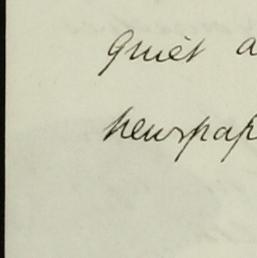 quiet a
newspap